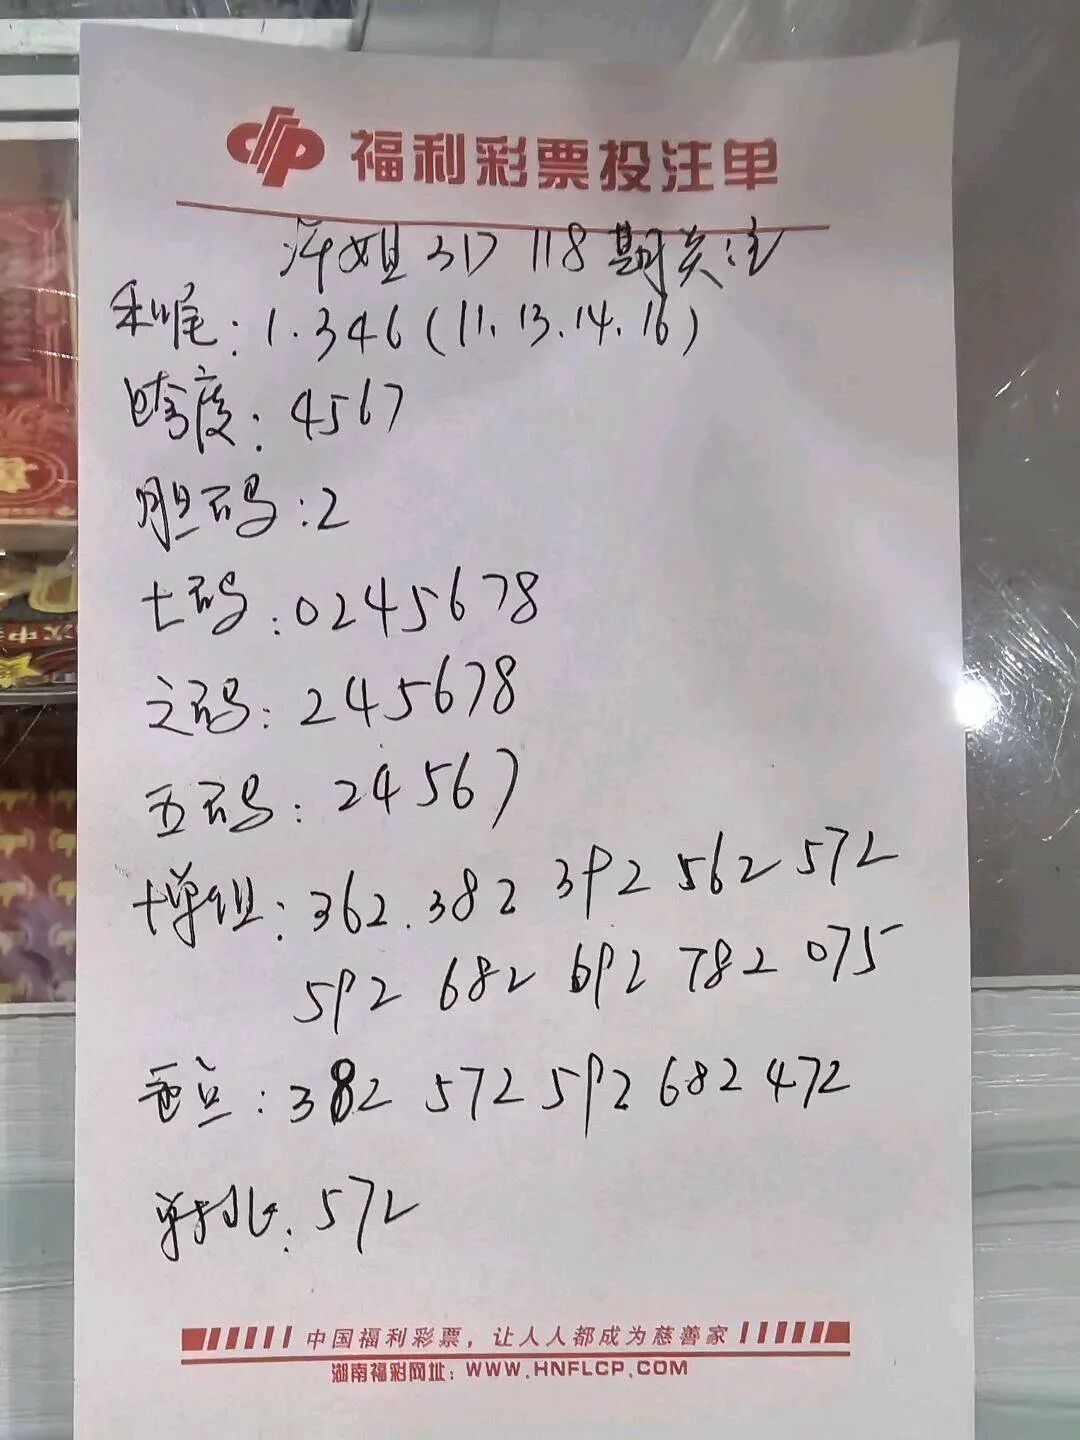 福利彩票投注单
萍姐 3D 118期关注
和尾: 1.346(11.13.14.16)
跨度: 4567
胆码: 2
七码: 0245678
六码: 245678
五码: 24567
十单组: 362.382 392 562 572
592 682 692 782 075
: 382 572 592 682 472
单挑: 572
中国福利彩票，让人人都成为慈善家
湖南福彩网址: WWW.HNFLCP.COM